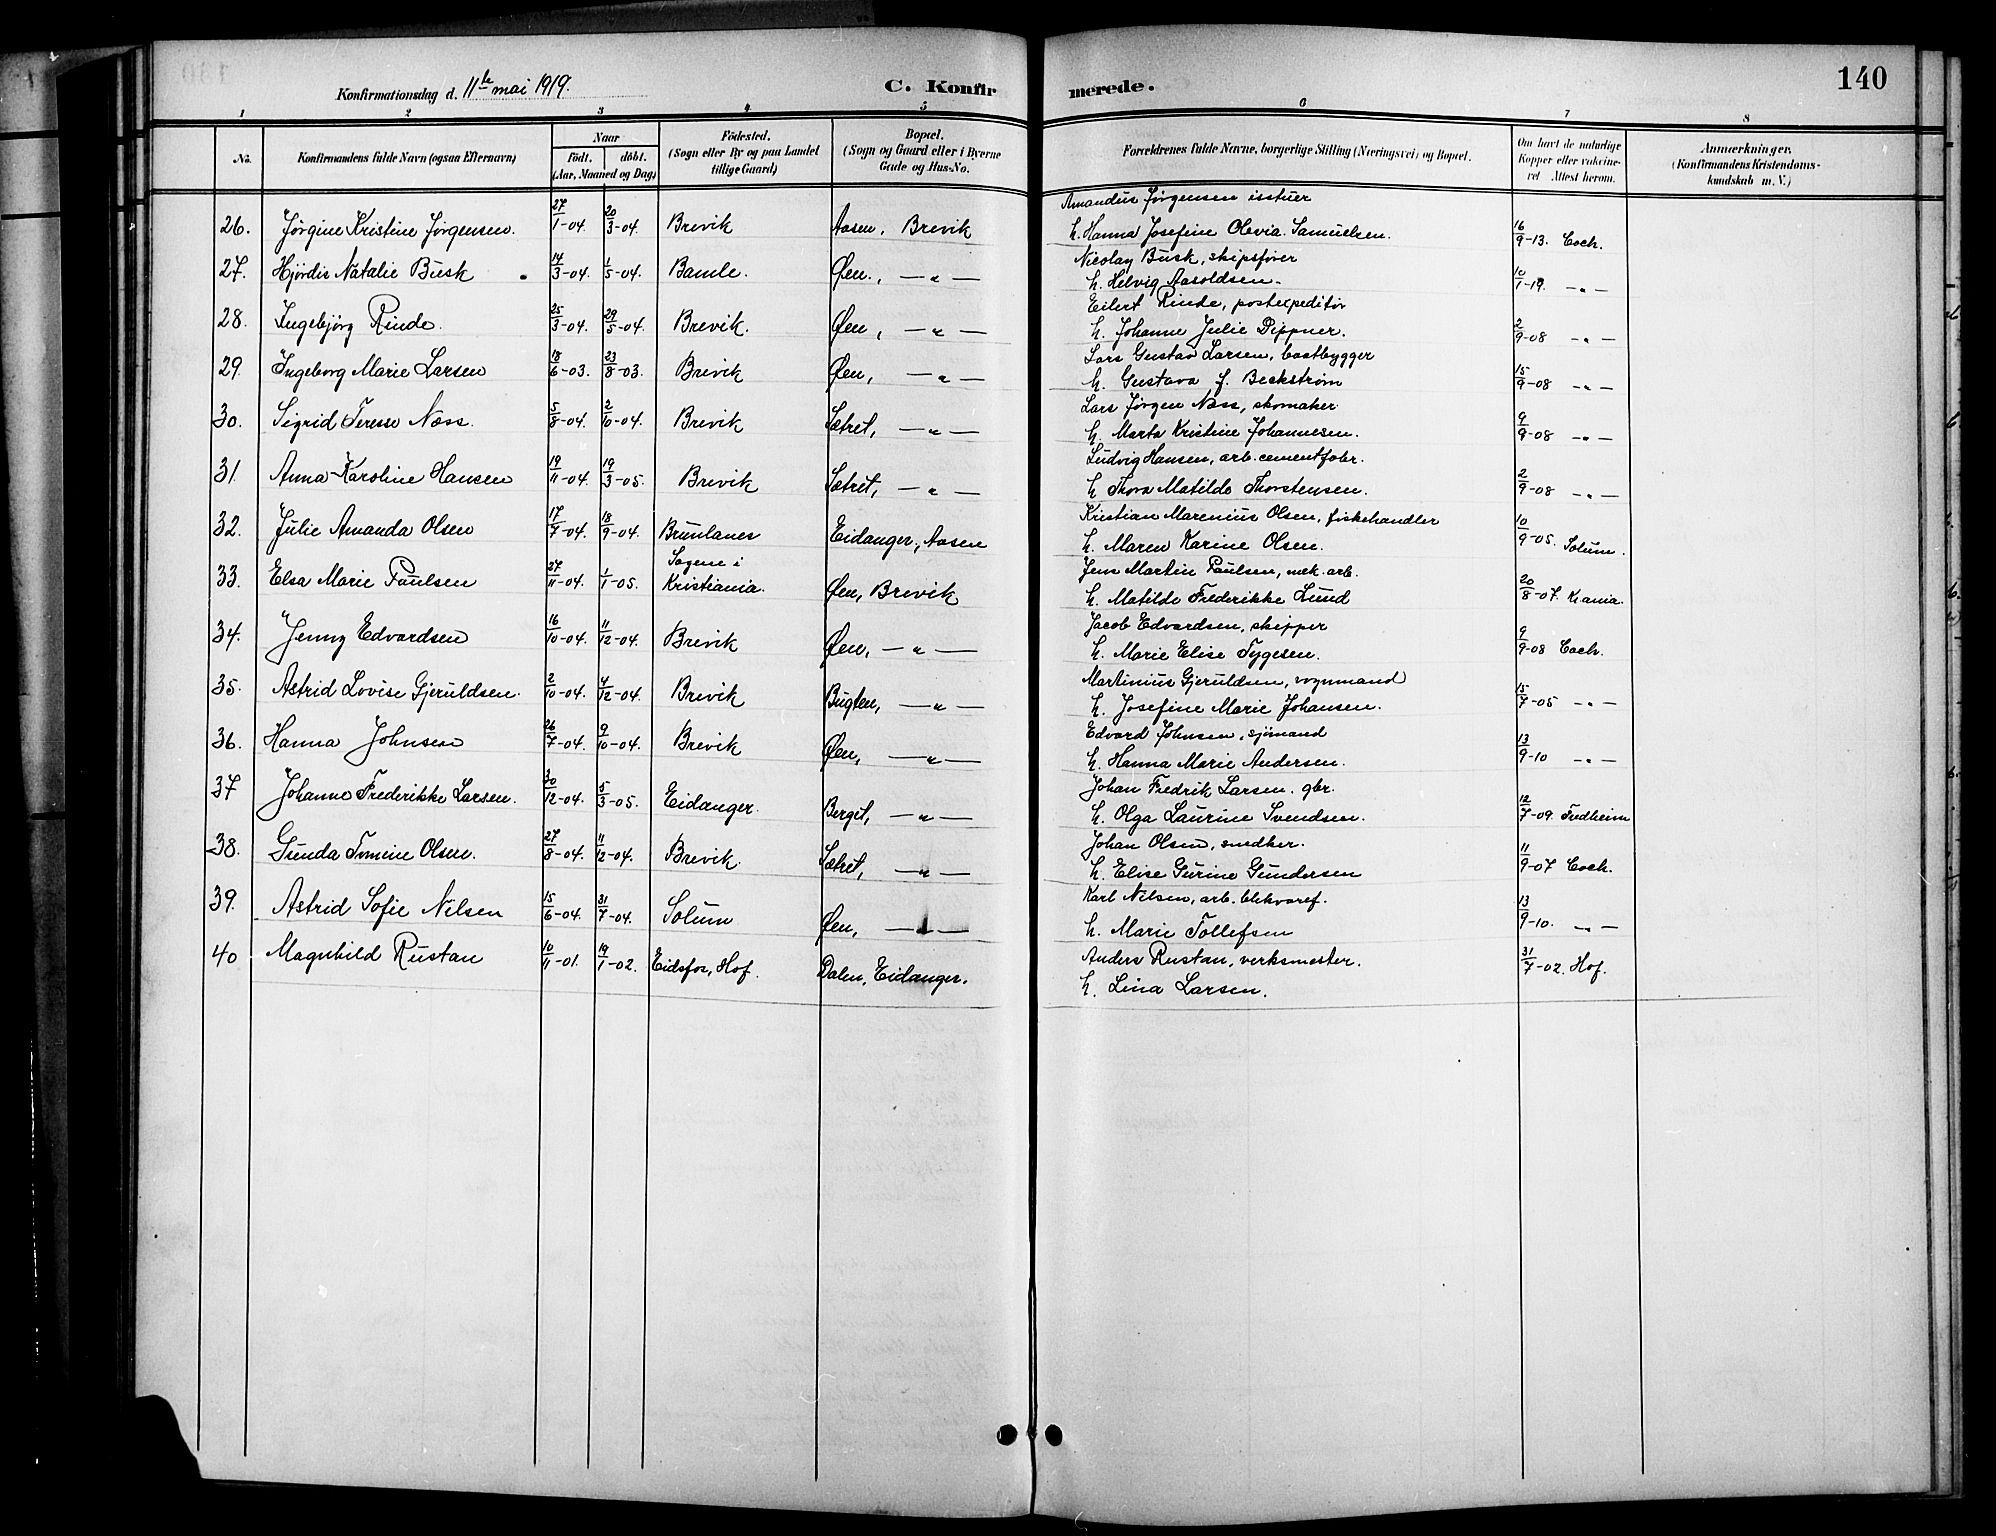 Konfirmationsdag d. 11te mai 1919.
C. Konfirmerede.
140
1 2 3 4 5 6 7 8
No.
Konfirmandens fulde Navn (ogsaa Efternavn)
Naar
födt. döbt.
(Aar, Maaned og Dag)
Födested.
(Sogn eller By og paa Landet
tillige Gaard)
Bopæl.
(Sogn og Gaard eller i Byerne
Gade og Hus-No.
Forældrenes fulde Navne, borgerlige Stilling (Næringsvei) og Bopæl.
Om havt de naturlige
Kopper eller vaccine-
ret Attest herom.
Anmærkninger.
(Konfirmandens Kristendoms-
kundskab m. V.)
Amandus Jørgensen isstuer
26. Jørgine Kristine Jørgensen. 27/1-04. 20/3-04. Brevik Aasen, Brevik h. Hanna Josefine Olevia Samuelsen. 16/9-13. Coch.
Nicolay Busk, skipsfører
27. Hjørdis Natalie Busk 14/3-04. 1/5-04. Bamle. Øen., —"— h. Helvig Aasoldsen. 10/1-19. —"—
Eilert Rinde, postexpeditør
28. Ingebjørg Rinde. 25/3-04. 29/5-04. Brevik. Øen, —"— h. Johanne Julie Dippner. 2/9-08 —"—
Lars Gustav Larsen, baatbygger
29. Ingeborg Marie Larsen 18/6-03. 23/8-03. Brevik Øen, —"— h. Gustava J. Beckstrøm 15/9-08 —"—
Lars Jørgen Næss, skomaker
30. Sigrid Terese Næss. 5/8-04. 2/10-04. Brevik Sætret, —"— h. Marta Kristine Johannesen. 9/9-08 —"—
Ludvig Hansen, arb. cementfabr.
31. Anna Karoline Hansen 19/11-04. 19/3-05. Brevik Sætret, —"— h Thora Matilde Thorstensen. 2/9-08 —"—
Kristian Marenius Olsen, fiskehandler
32. Julie Amanda Olsen 17/7-04. 18/9-04. Brunlanes Eidanger, Aasen h. Maren Karine Olsen. 10/9-05. Solum.
Jens Martin Paulsen, mek. arb.
33. Elsa Marie Paulsen 27/11-04. 1/1-05. Sagene i Kristiania. Øen, Brevik h. Matilde Frederikke Lund 20/8-07. Krania.
Jacob Edvardsen, skipper
34. Jenny Edvardsen 16/10-04. 11/12-04. Brevik Øen, —"— h. Marie Elise Tygesen. 9/9-08 Coch.
Martinius Gjeruldsen, vognmand
35. Astrid Lovise Gjeruldsen. 2/10-04. 4/12-04. Brevik Bugten, —"— h. Josefine Marie Johansen. 15/7-05 —"—
Edvard Johnsen, sjømand
36. Hanna Johnsen 26/7-04. 9/10-04. Brevik Øen, —"— h. Hanna Marie Andersen. 13/9-10 —"—
Johan Fredrik Larsen. gbr.
37 Johanne Frederikke Larsen. 30/12-04. 5/3-05. Eidanger. Berget, —"— h. Olga Laurine Svendsen. 12/7-09. Fredheim
Johan Olsen, snedker.
38. Gunda Tomine Olsen. 27/8-04. 11/12-04. Brevik. Sætret, —"— h. Elise Gurine Gundersen 11/9-07 Coch.
Karl Nilsen, arb. blekvaref.
39. Astrid Sofie Nilsen 15/6-04. 31/7-04. Solum Øen, —"— h. Marie Tollefsen 13/9-10. —"—
Anders Rustan, verksmester.
40 Magnhild Rustan 10/11-01. 19/1-02. Eidsfos, Hof. Dalen, Eidanger. 31/7-02. Hof.
h. Lina Larsen.